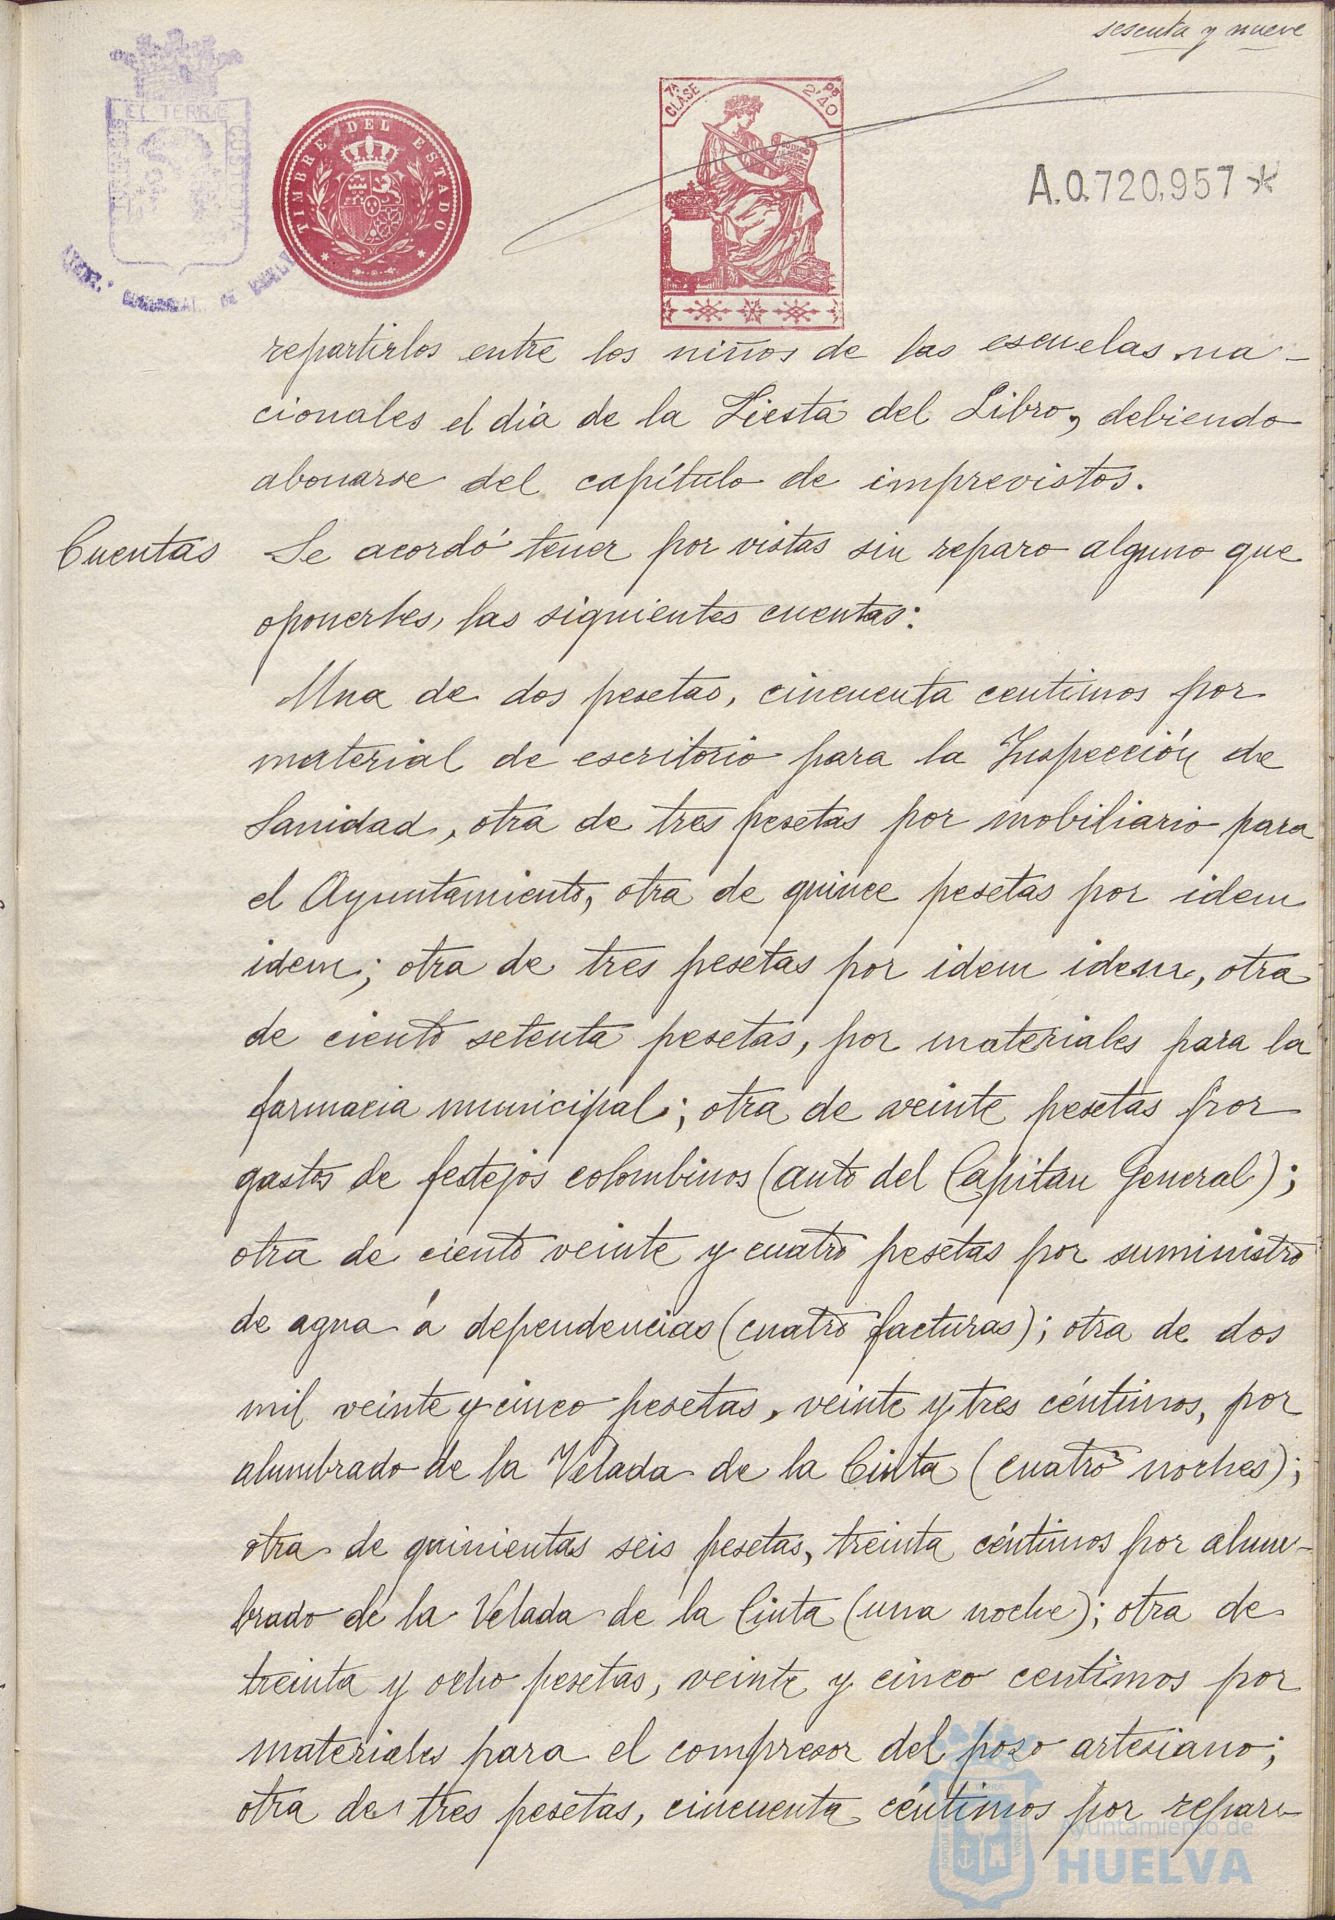 sesenta y nueve
PORTUS MARIS
ET TERRÆ
CUSTODIA
TIMBRE DEL ESTADO
7ª CLASE
Ps 2'40
A.0.720,957*
repartirlos entre los niños de las escuelas na-
cionales el día de la Fiesta del Libro, debiendo
abonarse del capítulo de imprevistos.
Cuentas Se acordó tener por vistas sin reparo alguno que
oponerles, las siguientes cuentas:
Una de dos pesetas, cincuenta centimos por
material de escritorio para la Inspección de
Sanidad, otra de tres pesetas por mobiliario para
el Ayuntamiento, otra de quince pesetas por idem
idem; otra de tres pesetas por idem idem, otra
de ciento setenta pesetas, por materiales para la
farmacia municipal; otra de veinte pesetas por
gastos de festejos colombinos (auto del Capitan General);
otra de ciento veinte y cuatro pesetas por suministro
de agua á dependencias (cuatro facturas); otra de dos
mil veinte y cinco pesetas, veinte y tres céntimos, por
alumbrado de la Velada de la Cinta (cuatro noches);
otra de quinientas seis pesetas, treinta céntimos por alum-
brado de la Velada de la Cinta (una noche); otra de
treinta y ocho pesetas, veinte y cinco centimos por
materiales para el compresor del pozo artesiano;
otra de tres pesetas, cincuenta céntimos por repara-
Ayuntamiento de
HUELVA